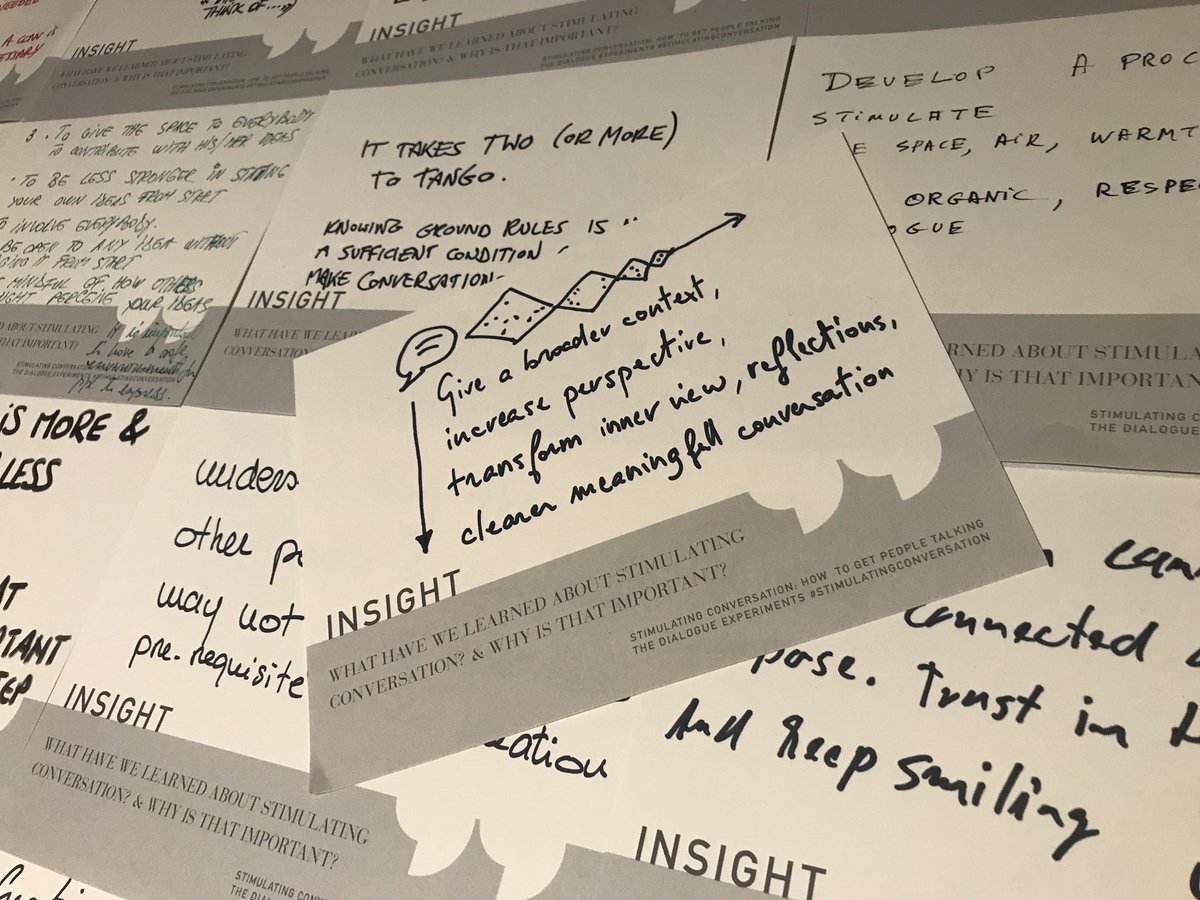 NEEDED
A COW IS
THINK OF.....
INSIGHT
WHAT HAVE WE LEARNED ABOUT STIMULATING
CONVERSATION? & WHY IS THAT IMPORTANT?
INSIGHT
WHAT HAVE WE LEARNED ABOUT STIMULATING
CONVERSATION? & WHY IS THAT IMPORTANT?
STIMULATING CONVERSATION: HOW TO GET PEOPLE TALKING
THE DIALOGUE EXPERIMENTS #STIMULATINGCONVERSATION
STIMULATING CONVERSATION: HOW TO GET PEOPLE TALKING
THE DIALOGUE EXPERIMENTS #STIMULATINGCONVERSATION
3. TO GIVE THE SPACE TO EVERYBODY
TO CONTRIBUTE WITH HIS/HER IDEAS
. TO BE LESS STRONGER IN STATING
YOUR OWN IDEAS FROM START
INVOLVE EVERYBODY.
BE OPEN TO ANY IDEA WITHOUT
IT FROM START
MINDFUL OF HOW OTHERS
PERCEIVE YOUR IDEAS
ABOUT STIMULATING
IS THAT IMPORTANT?
It is important
to have a safe
to express.
IT TAKES TWO (OR MORE)
TO TANGO.
KNOWING GROUND RULES IS
A SUFFICIENT CONDITION
MAKE CONVERSATION
INSIGHT
WHAT HAVE WE
CONVERSATION?
DEVELOP A PROC
STIMULATE
E SPACE, AIR, WARMT
ORGANIC, RESPE
OGUE
RNED ABOUT STIMULA
HY IS THAT IMPORTAN
STIMULATING C
THE DIALOGUE EXPER
Give a broader context,
increase perspective,
transform inner view, reflections,
clearer meaningfull conversation
INSIGHT
WHAT HAVE WE LEARNED ABOUT STIMULATING
CONVERSATION? & WHY IS THAT IMPORTANT?
STIMULATING CONVERSATION: HOW TO GET PEOPLE TALKING
THE DIALOGUE EXPERIMENTS #STIMULATINGCONVERSATION
IS MORE &
LESS
AT
RTANT
TEP
unders
other p
may not
pre-requisite
INSIGHT
WHAT HAVE WE LEARNED ABOUT STIMULATING
CONVERSATION? & WHY IS THAT IMPORTANT?
STIMULATING CON
THE DIA
eation
connected
pose. Trust in
And keep smiling
INSIGHT